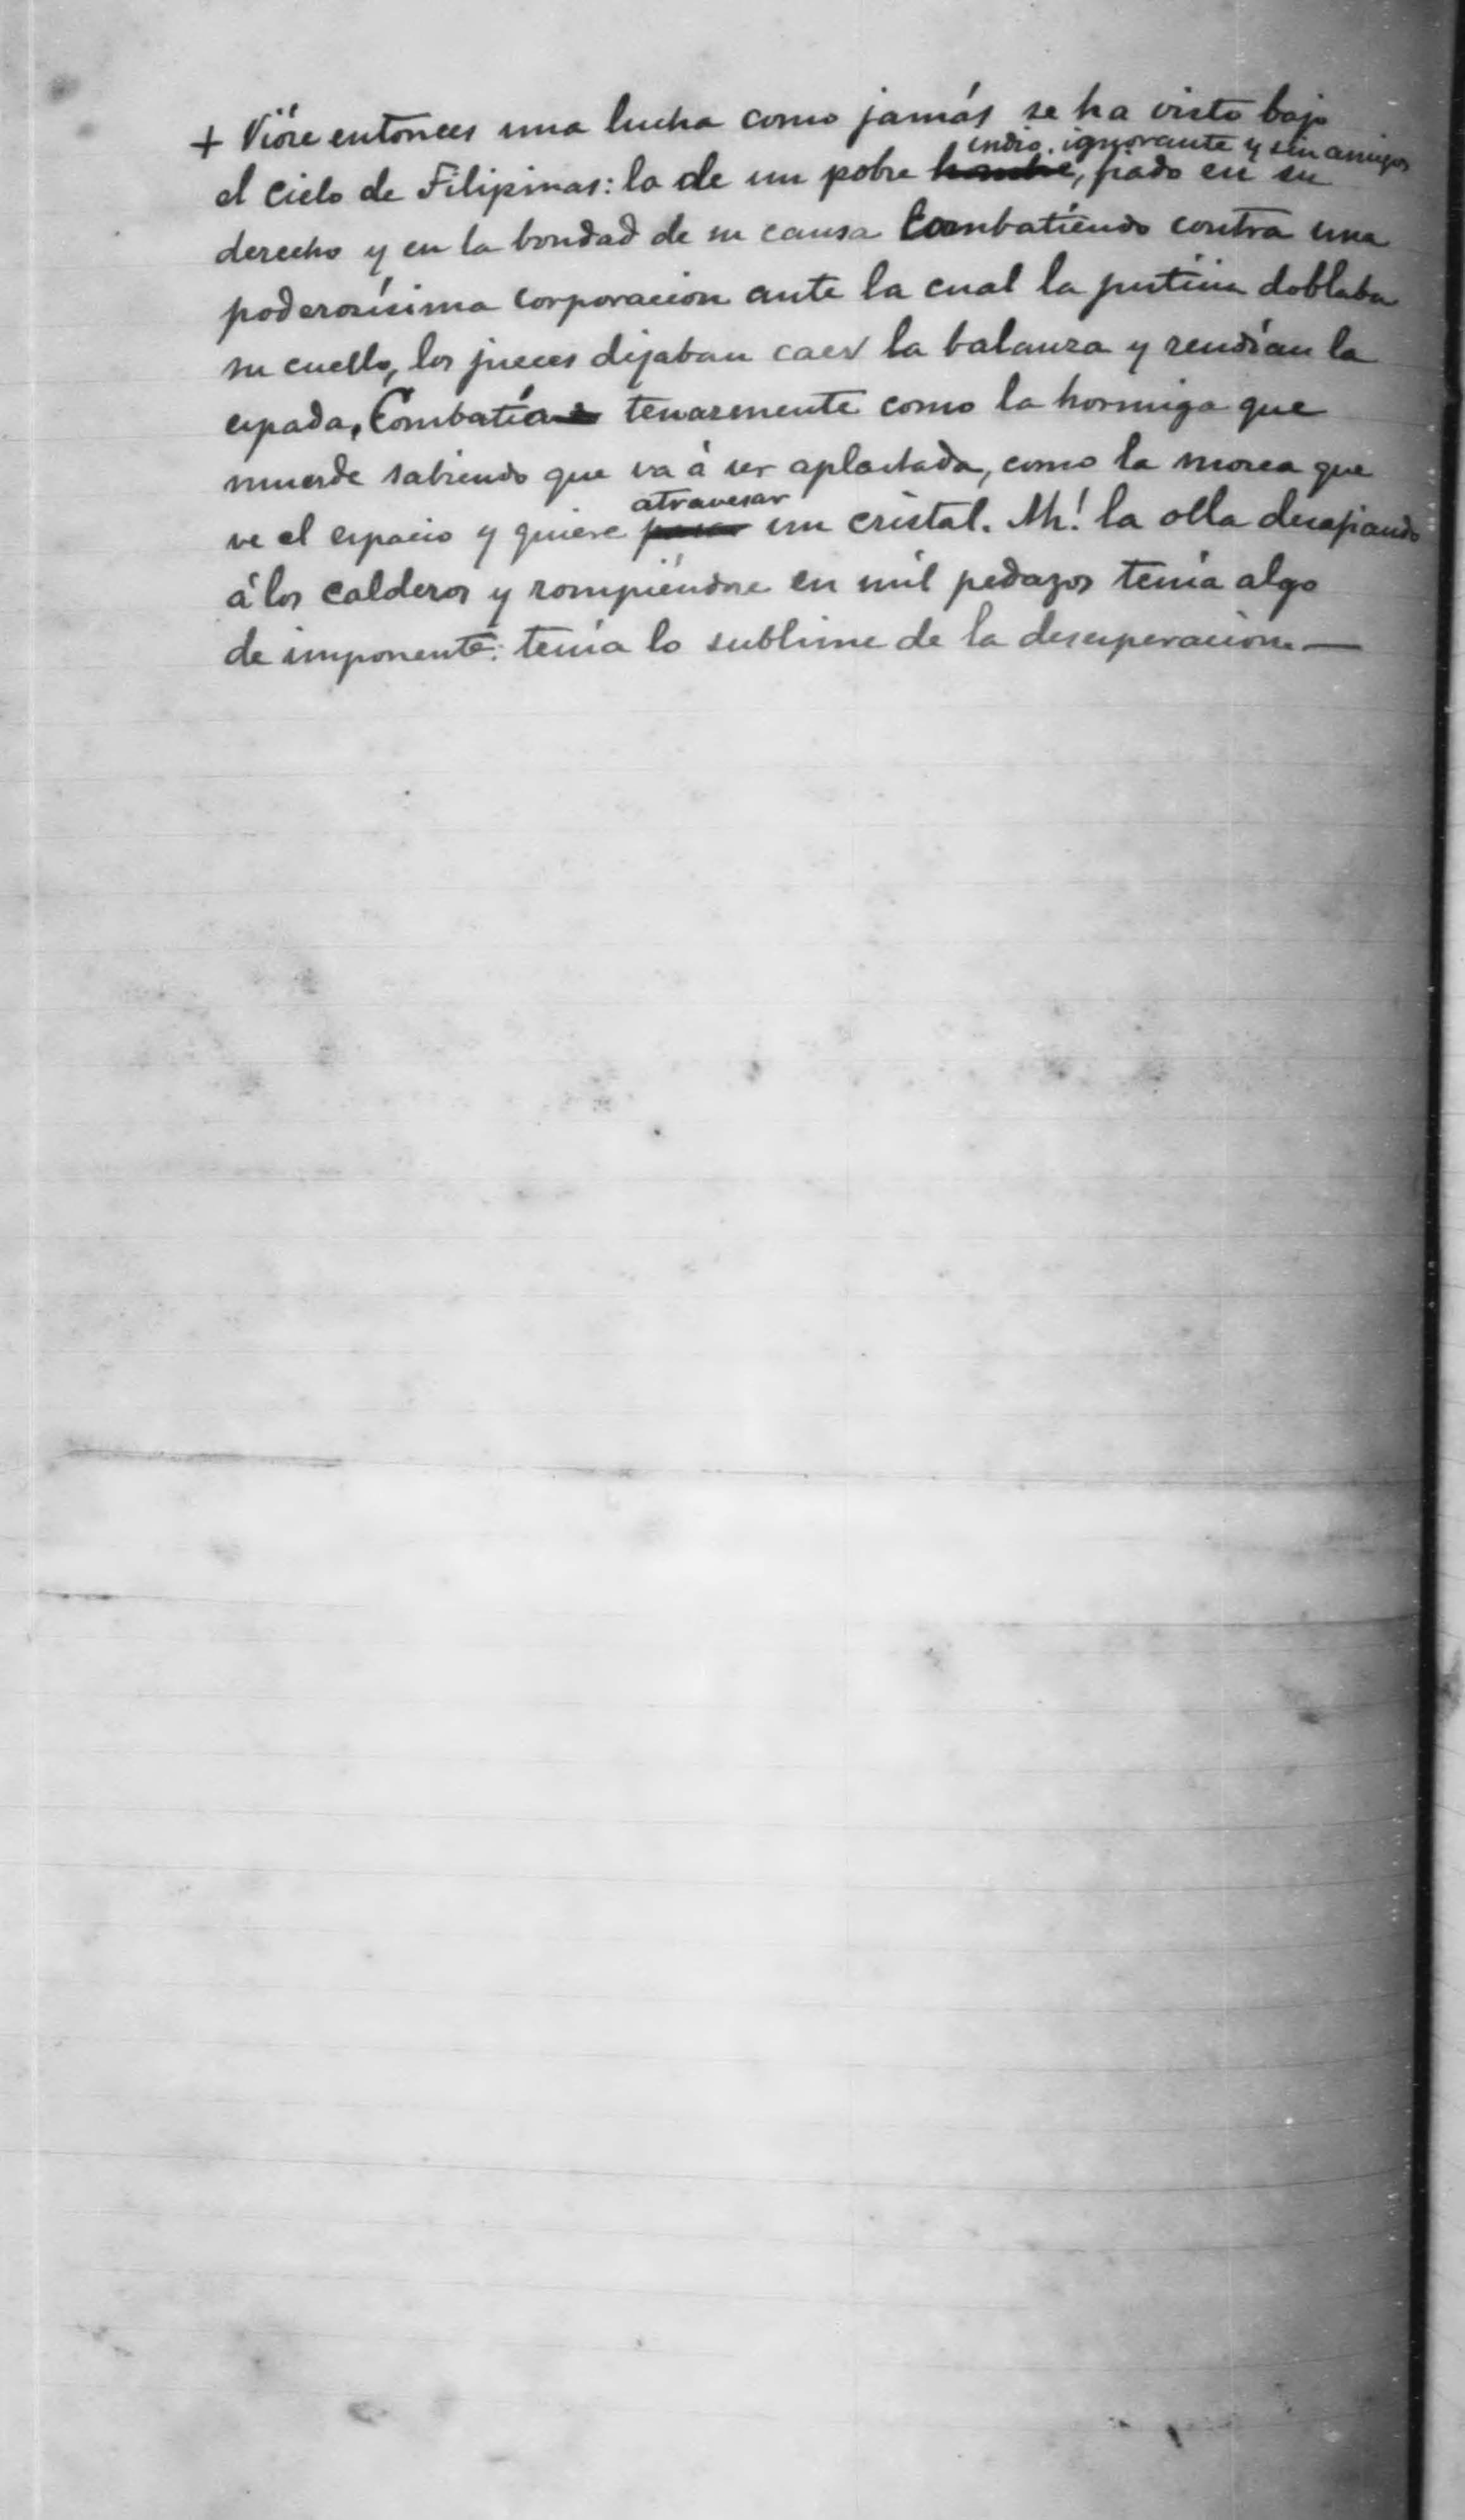 + Vióse entonces una lucha como jamás se ha visto bajo
indio, ignorante y sin amigos
el cielo de Filipinas: la de un pobre hombre, fiado en su
derecho y en la bondad de su causa combatiendo contra una
poderosísima corporacion ante la cual la justicia doblaba
su cuello, los jueces dejaban caer la balanza y rendían la
espada. Combatía tenazmente como la hormiga que
muerde sabiendo que va á ser aplastada, como la mosca que
atravesar
ve el espacio y quiere un cristal. Ah! la olla desafiando
á los calderos y rompiéndose en mil pedazos tenía algo
de imponente: tenía lo sublime de la desesperacion.—